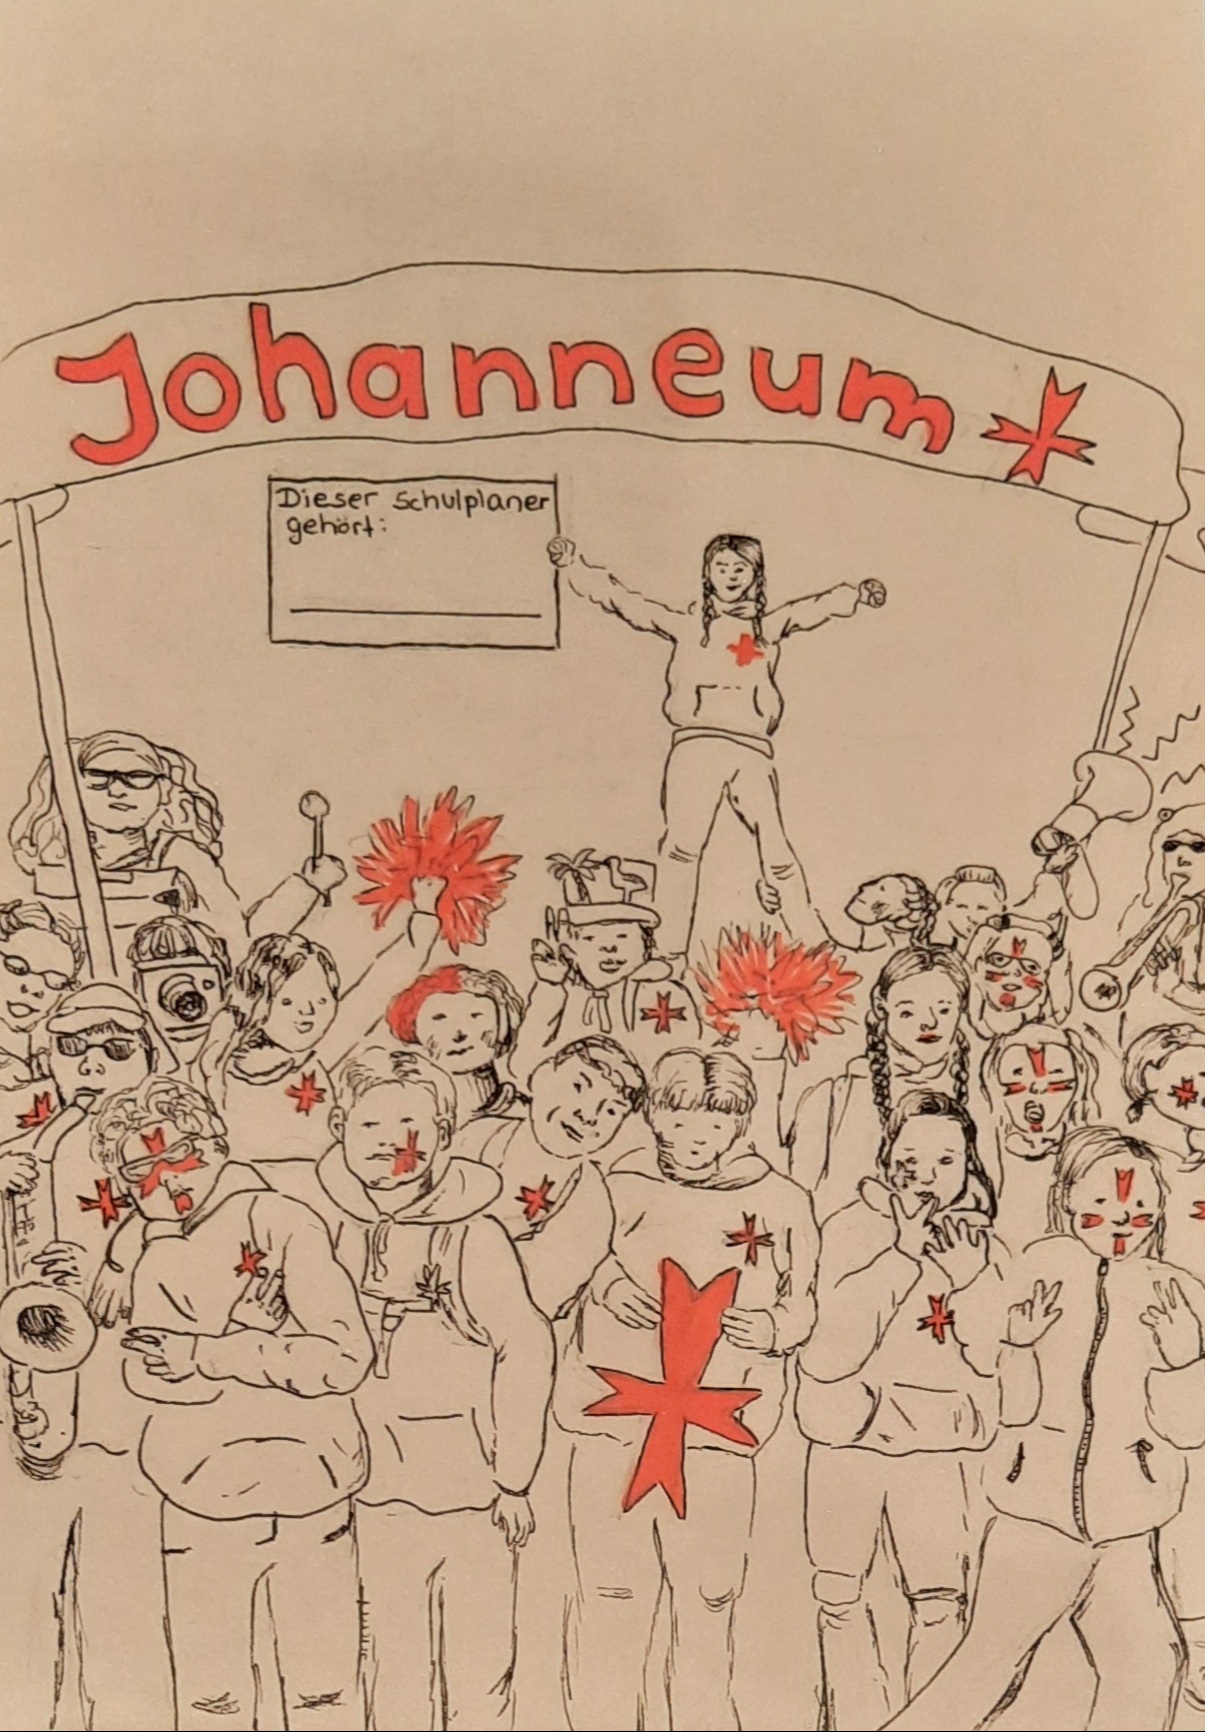 Johanneum
Dieser Schulplaner
gehört: